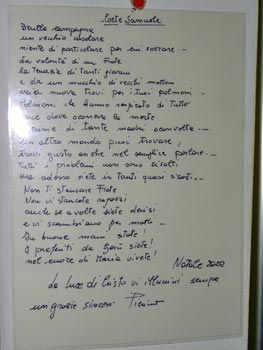 Corte Samuele
Brulle campagne
un vecchio casolare
niente di particolare per cui sostare..
la volontà di un Frate
la tenacia di tanti giovani
e da un mucchio di vecchi mattoni
aria nuova trovi per i tuoi polmoni..
Polmoni che hanno respirato di tutto
la morte
di tante madri sconvolte..
Un altro mondo puoi trovare
trovi gusto anche nel semplice postare..
Tutti i problemi non sono
ma adesso siete in tanti quasi risorti..
Non ti stancare Frate
Non vi stancate ragazzi
anche se a volte siete derisi
e vi scambiano per molli..
In buone mani state!
I preferiti da Gesù siete!
nel cuore di Maria vivete!
Natale 2002
La luce di Cristo vi illumini sempre
un grazie sincero Pierino